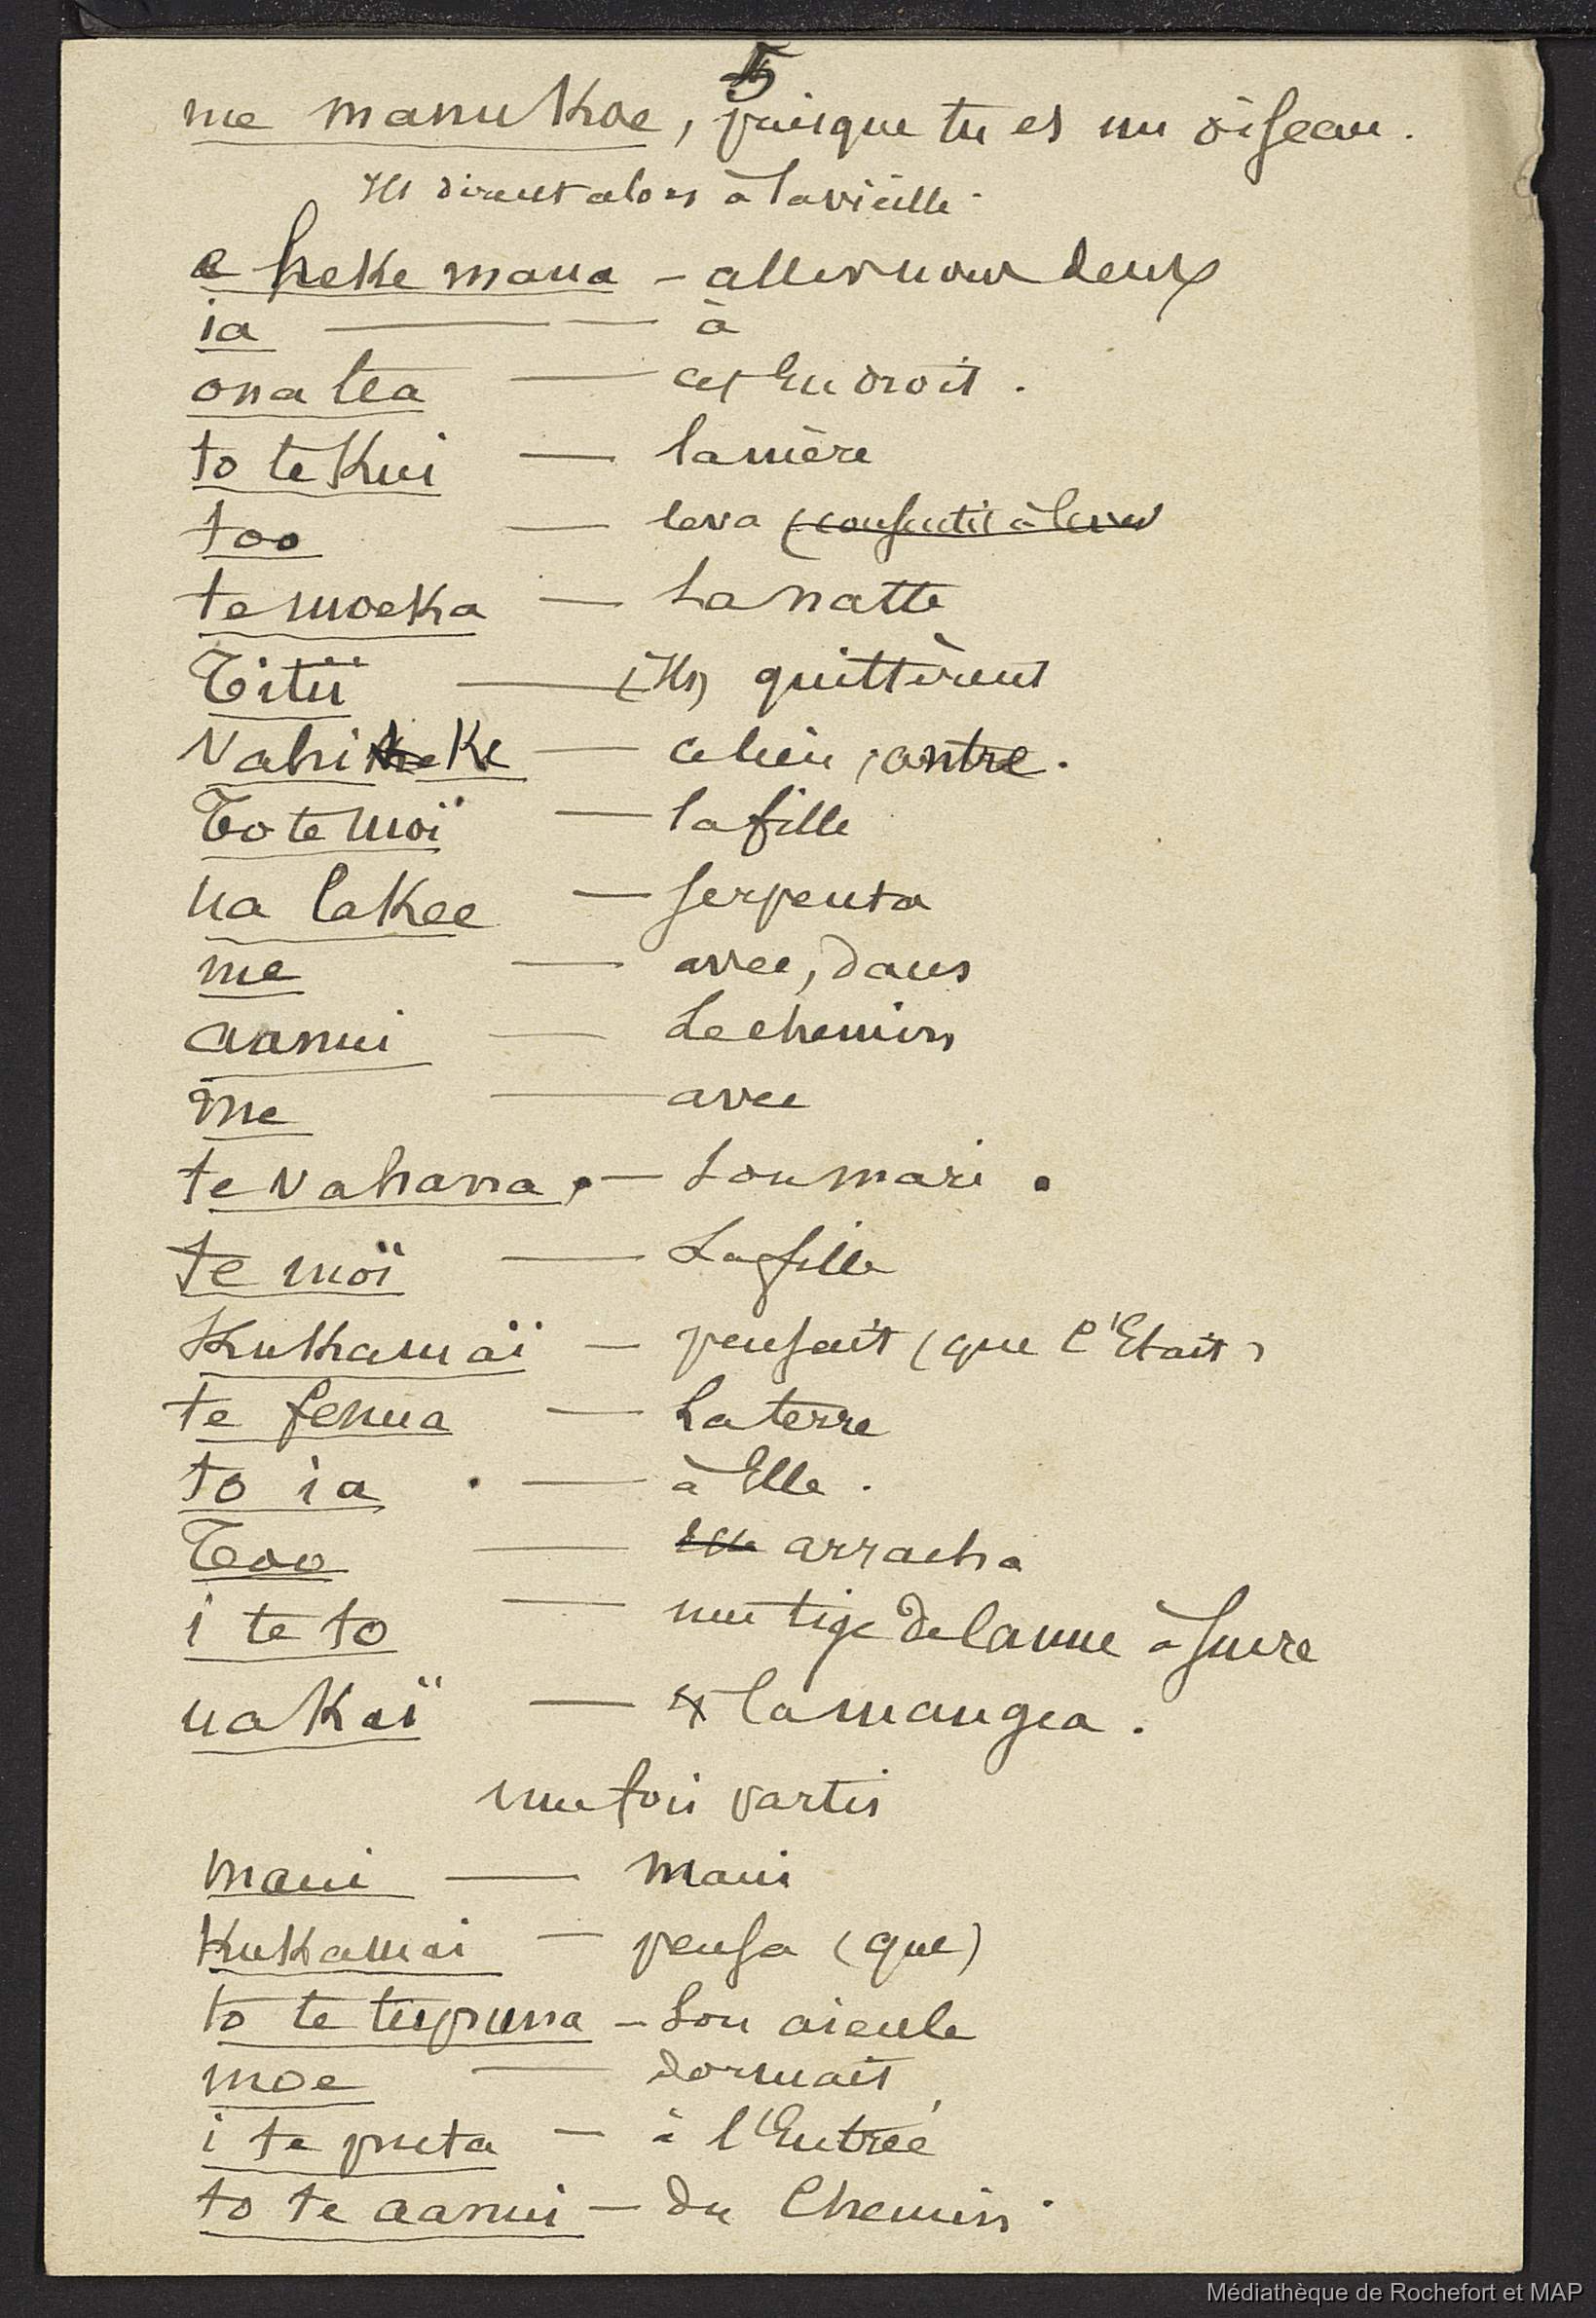 5
me manu Koe, puisque tu es un oiseau.
Ils dirent alors à la vieille
e heke maua - aller nous deux
ia — à
ona tea — cet Endroit.
to te Kui — la mère
too — leva (consentit à lever
te moeka — La natte
Titii — (Ils) quittèrent
Vahi Ke — ce lieu, antre.
To te moï — la fille
na lakee — serpenta
me — avec, dans
aanui — Le chemin
me — avec
te vahana, — Son mari.
te moï — La fille
Kukamaï — pensait (que c'Etait)
te fenua — La terre
to ia — à Elle.
Too — Elle arracha
i te to — une tige de canne à sucre
ua Kaï — et la mangea.
une fois partis
Maui — Maui
Kukamai — pensa (que)
to te tupuna - Son aieule
moe — dormait
i te puta — à l'Entrée
to te aanui — du Chemin
Médiathèque de Rochefort et MAP